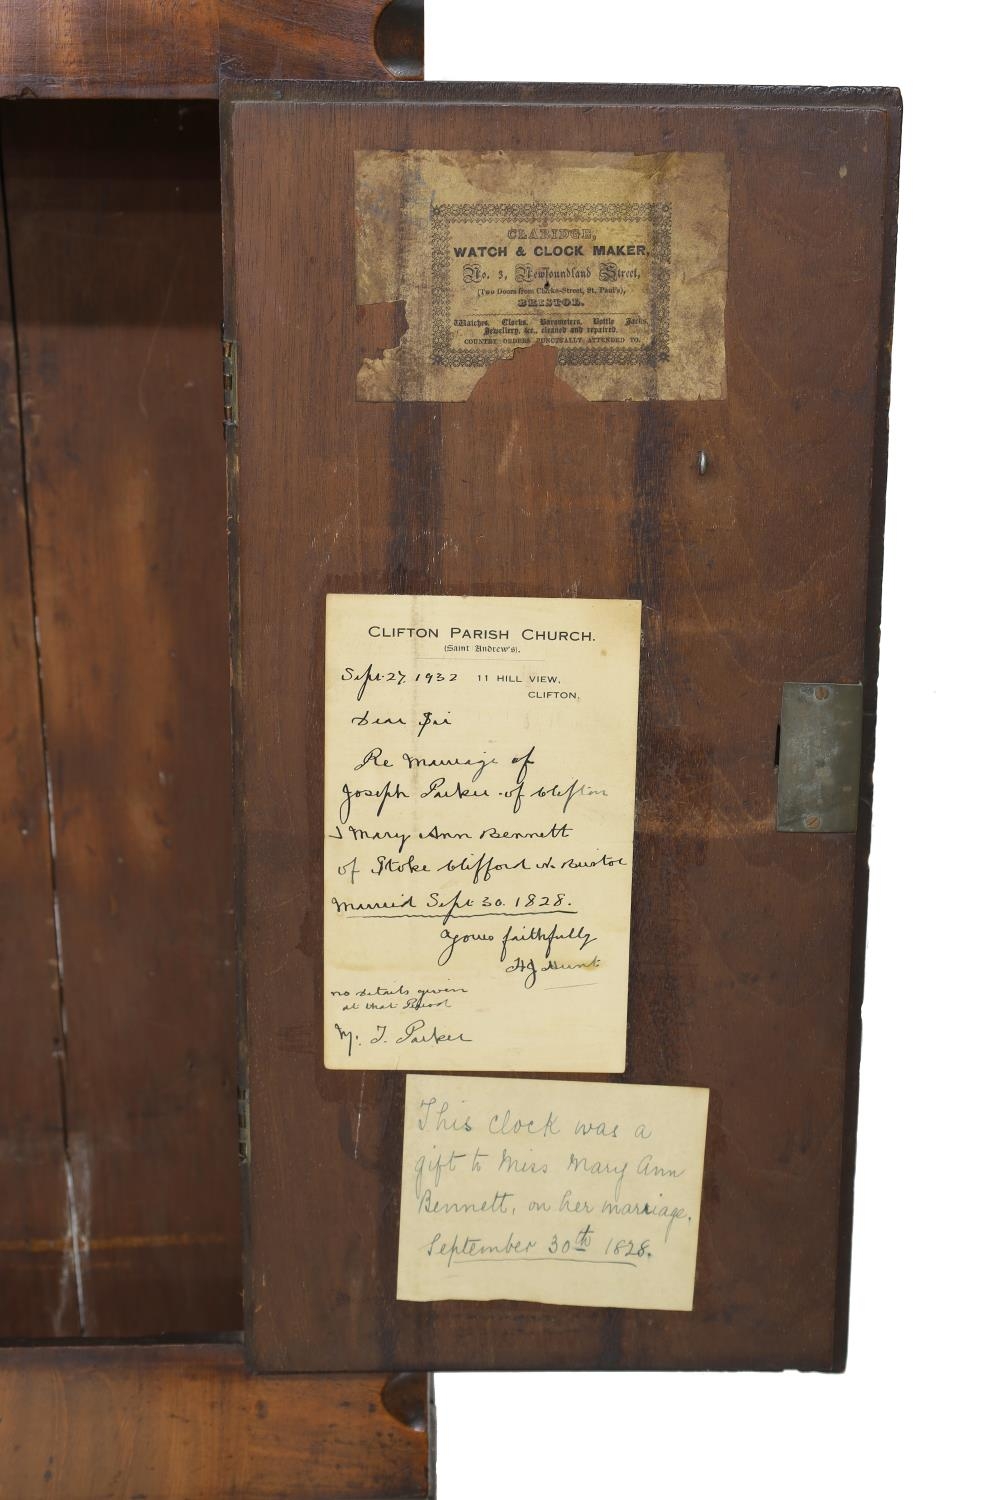 CLARIDGE,
WATCH & CLOCK MAKER,
No. 3, Newfoundland Street,
(Two Doors from Clarke-Street, St. Paul's),
BRISTOL.
Watches, Clocks, Barometers, Bottle Jacks,
Jewellery, &c., cleaned and repaired.
COUNTRY ORDERS PUNCTUALLY ATTENDED TO.
CLIFTON PARISH CHURCH.
(Saint Andrew's).
Sept. 27. 1932 11 HILL VIEW,
CLIFTON.
Dear Sir
Re Marriage of
Joseph Parker of Clifton
& Mary Ann Bennett
of Stoke Clifford N. Bristol
Married Sept 30. 1828.
Yours faithfully
HJ Hunt
no details given
at that Period
Mr. T. Parker
This clock was a
gift to Miss Mary Ann
Bennett, on her marriage,
September 30th 1828.